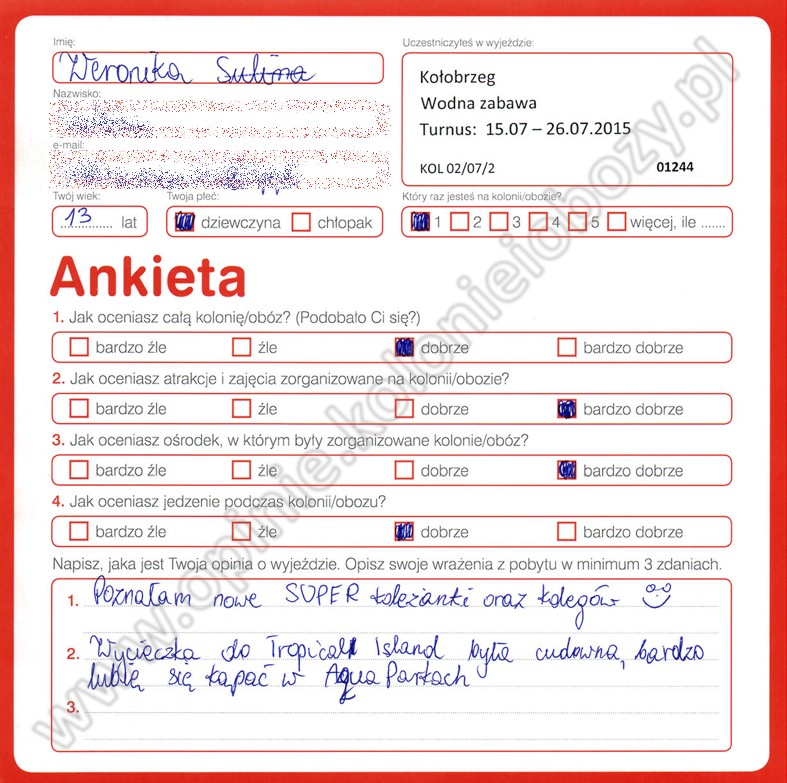 Imię:
Weronika Sulima
Uczestniczyłeś w wyjeździe:
Kołobrzeg
Wodna zabawa
Turnus: 15.07 – 26.07.2015
KOL 02/07/2 01244
Nazwisko:
e-mail:
Twój wiek:
13 lat
Twoja płeć:
dziewczyna chłopak
Który raz jesteś na kolonii/obozie?
1 2 3 4 5 więcej, ile .......
Ankieta
1. Jak oceniasz całą kolonię/obóz? (Podobało Ci się?)
bardzo źle źle dobrze bardzo dobrze
2. Jak oceniasz atrakcje i zajęcia zorganizowane na kolonii/obozie?
bardzo źle źle dobrze bardzo dobrze
3. Jak oceniasz ośrodek, w którym były zorganizowane kolonie/obóz?
bardzo źle źle dobrze bardzo dobrze
4. Jak oceniasz jedzenie podczas kolonii/obozu?
bardzo źle źle dobrze bardzo dobrze
Napisz, jaka jest Twoja opinia o wyjeździe. Opisz swoje wrażenia z pobytu w minimum 3 zdaniach.
1. Poznałam nowe SUPER koleżanki oraz kolegów
2. Wycieczka do Tropical Island była cudowna, bardzo
lubię się kąpać w Aqua Parkach
3.
www.opinie.kolonieiobozy.pl